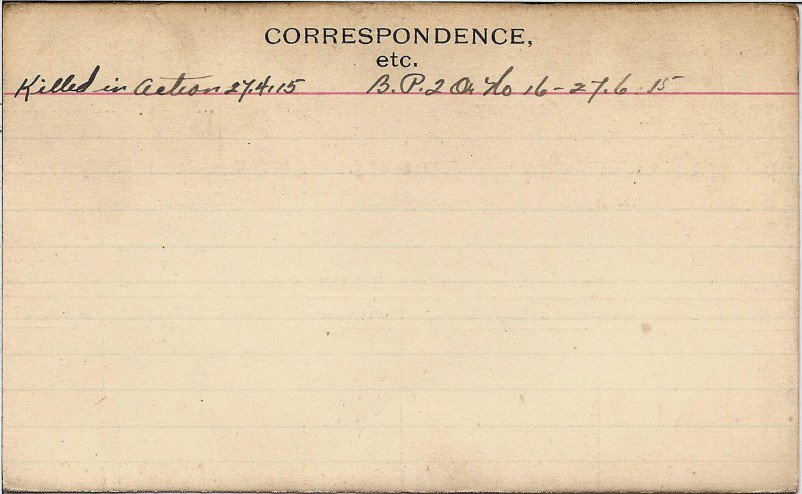 CORRESPONDENCE,
etc.
Killed in Action 27.4.15 B.P.2 Or No 16-27.6.15